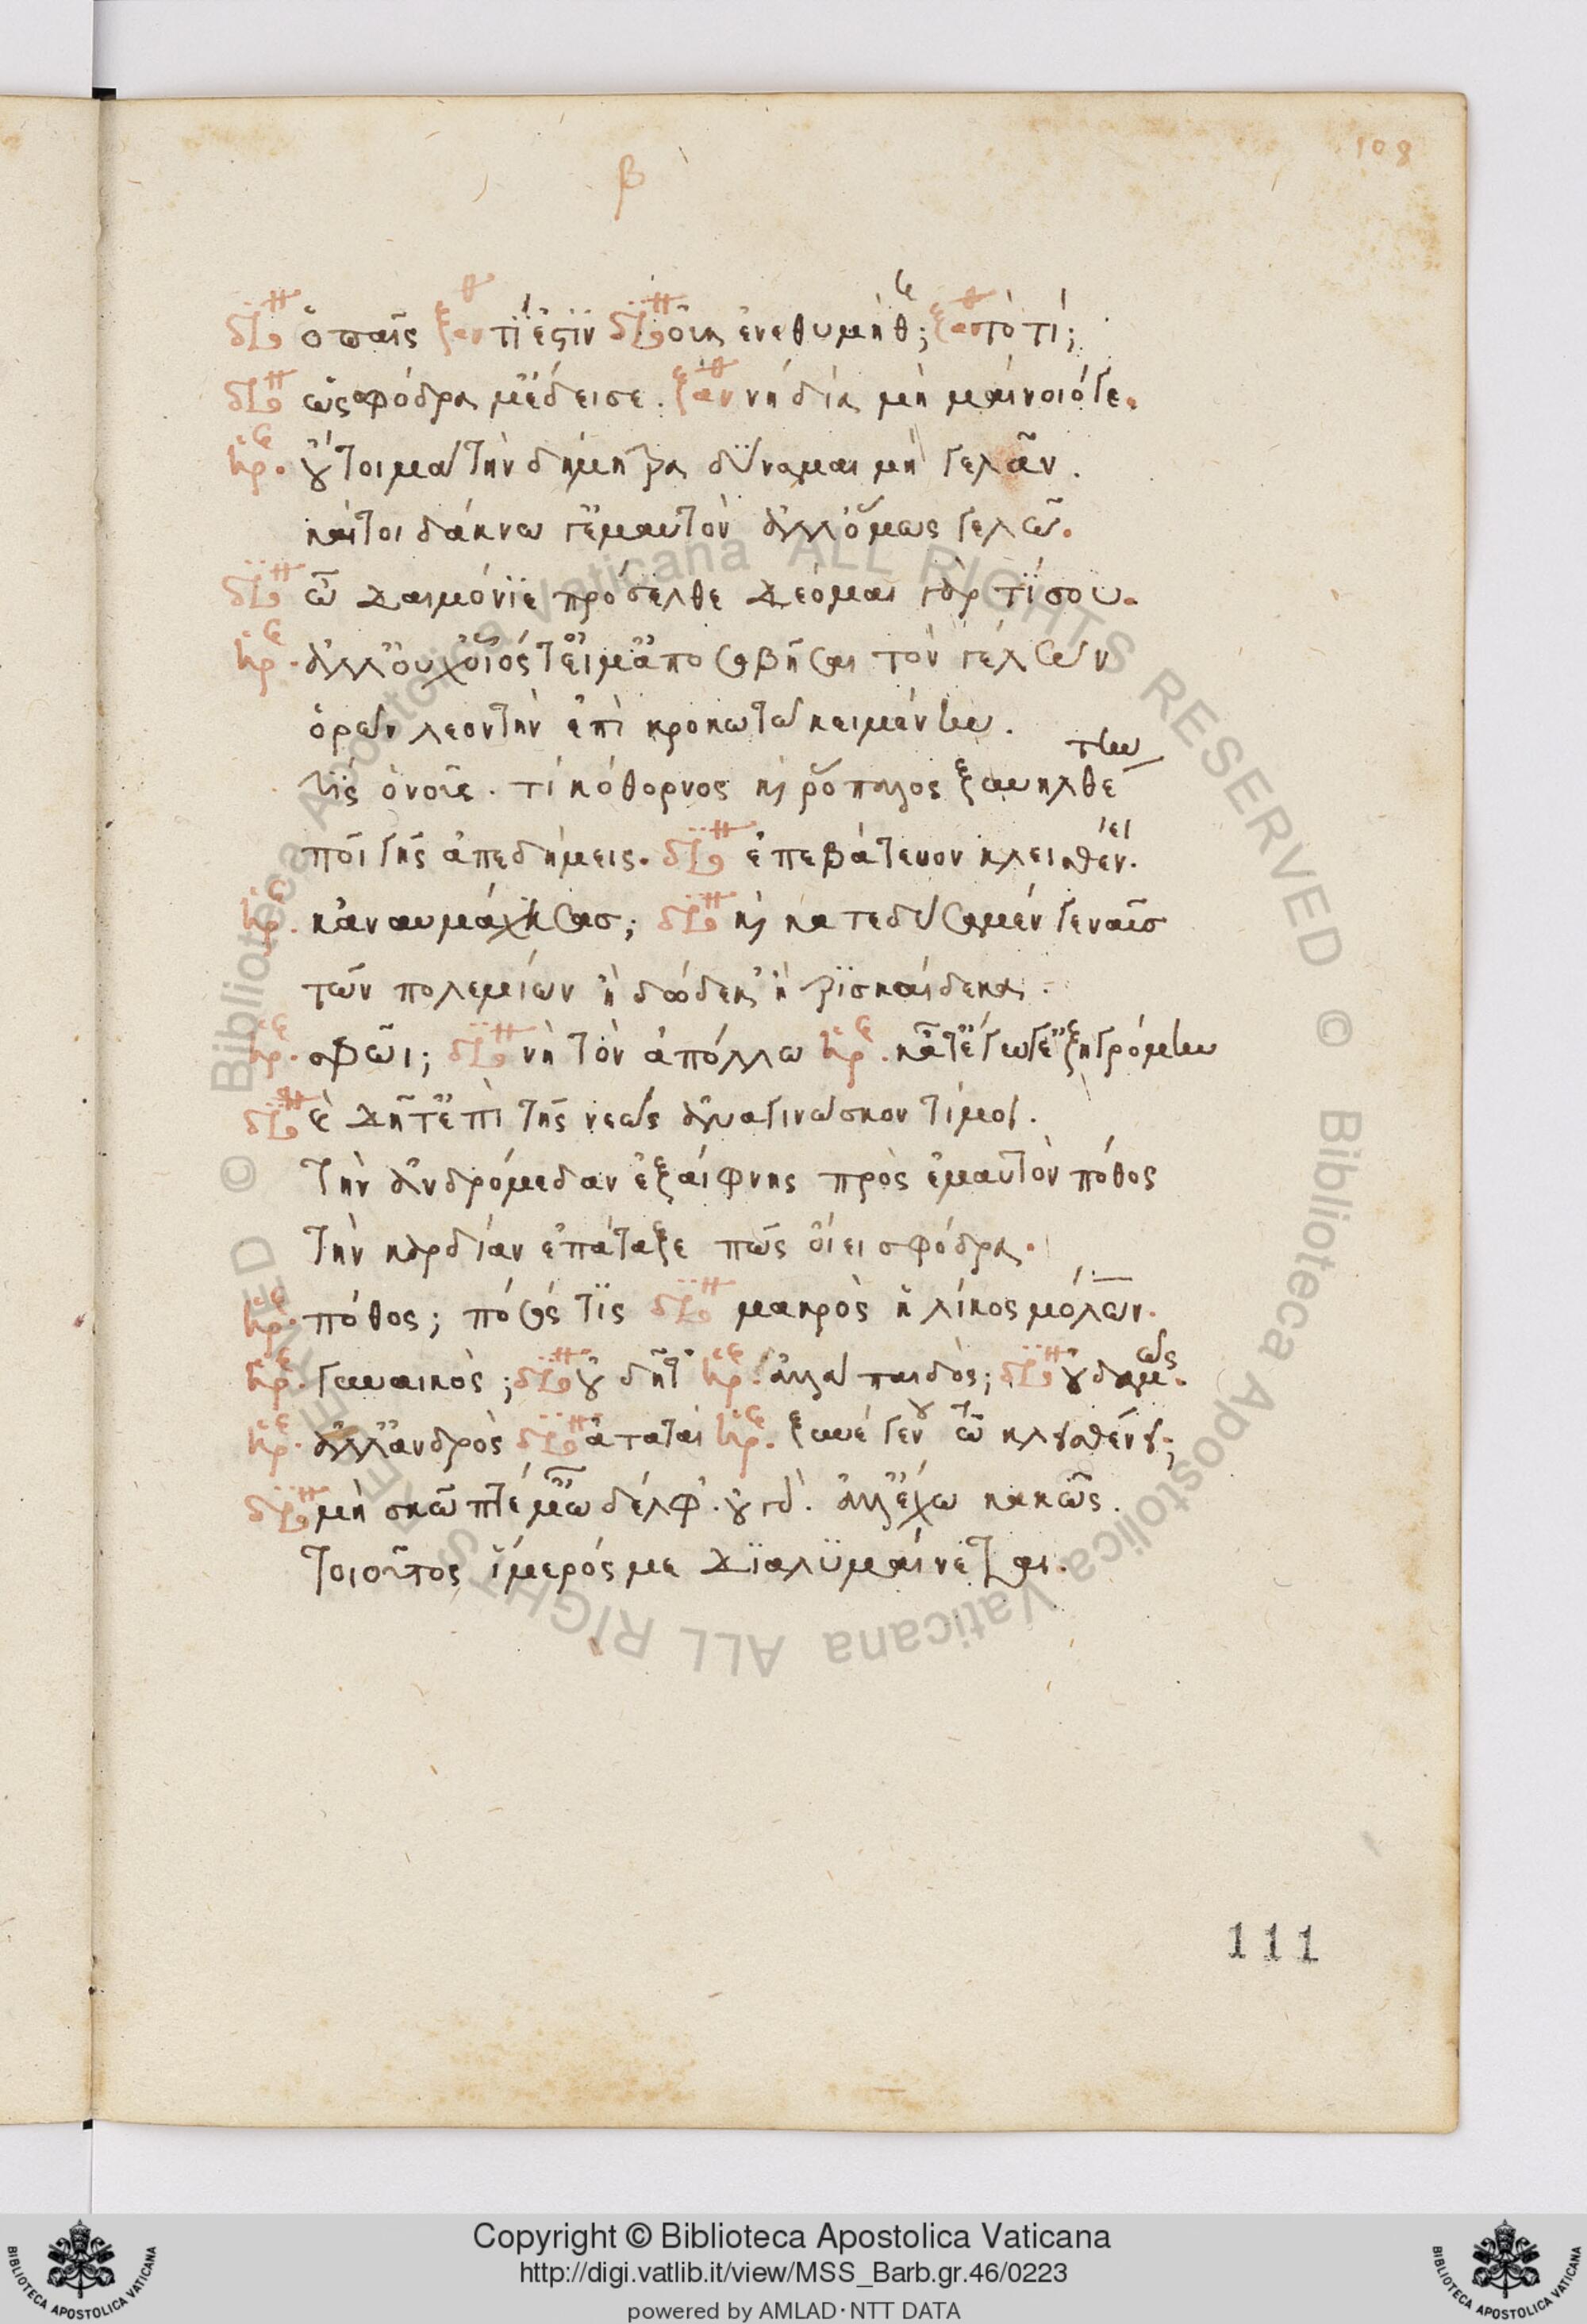 108
β
δι ὁ παῖς ξαν τί ἐστιν δι οὐκ ἐνεθυμήθης; ξαν τὸ τί;
δι ὡς σφόδρα μ' ἔδεισε. ξαν νὴ δία μὴ μαίνοιό γε.
ἡρ. οὔτοι μὰ τὴν δήμητρα δύναμαι μὴ γελᾶν.
καίτοι δάκνω γ' ἐμαυτὸν ἀλλ' ὅμως γελῶ.
δι ὦ δαιμόνιε πρόσελθε δέομαι γὰρ τί σου.
ἡρ. ἀλλ' οὐχ οἷός τ' εἴμ' ἀποσοβῆσαι τὸν γέλων
ὁρῶν λεοντὴν ἐπὶ κροκωτῶ κειμένην.
τίς ὁ νοῦς. τί κόθορνος καὶ ῥόπαλον ξυνηλθέτην
ποῖ γῆς ἀπεδήμεις. δι ἐπεβάτευον κλεισθένει.
ἡρ. κἀναυμάχησας; δι καὶ κατεδύσαμέν γε ναῦς
τῶν πολεμίων ἢ δώδεκ' ἢ τρισκαίδεκα.
ἡρ. σφῶι; δι νὴ τὸν ἀπόλλω ἡρ. κᾆτ' ἔγωγ' ἐξηγρόμην
δι καὶ δῆτ' ἐπὶ τῆς νεὼς ἀναγινώσκοντί μοι.
τὴν ἀνδρομέδαν ἐξαίφνης πρὸς ἐμαυτὸν πόθος
τὴν καρδίαν ἐπάταξε πῶς οἴει σφόδρα.
ἡρ. πόθος; πόσος τίς δι μικρὸς ἡλίκος μόλων.
ἡρ. γυναικὸς; δι οὐ δῆτ' ἡρ. ἀλλὰ παιδὸς; δι οὐδαμῶς.
ἡρ. ἀλλ' ἀνδρὸς δι ἀταταὶ ἡρ. ξυνεγένου τῶ κλεισθένει;
δι μὴ σκῶπτέ μ' ὦ δέλφ'. οὐ γὰρ. ἀλλ' ἔχω κακῶς.
τοιοῦτος ἵμερός με διαλυμαίνεται.
111
© Biblioteca Apostolica Vaticana ALL RIGHTS RESERVED © Biblioteca Apostolica Vaticana ALL RIGHTS RESERVED
Copyright © Biblioteca Apostolica Vaticana
http://digi.vatlib.it/view/MSS_Barb.gr.46/0223
powered by AMLAD·NTT DATA
BIBLIOTECA APOSTOLICA VATICANA
BIBLIOTECA APOSTOLICA VATICANA